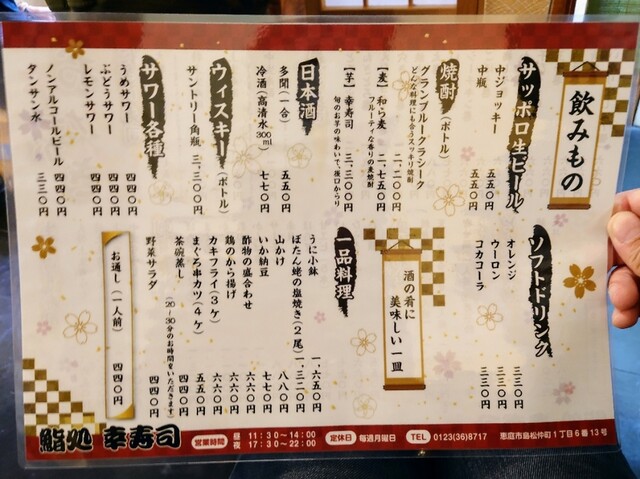 飲みもの
サッポロ生ビール
中ジョッキー 五五〇円
中瓶 五五〇円
焼酎(ボトル)
グランブルークラシーク 二、二〇〇円
どんな料理にも合うスッキリ焼酎
【麦】 和ら麦 二、七五〇円
フルーティな香りの麦焼酎
【芋】 幸寿司 三、三〇〇円
旬のお芋の味わいで、後口からり
日本酒
多聞(一合) 五五〇円
冷酒(高清水300ml) 七七〇円
ウィスキー(ボトル)
サントリー角瓶 三、三〇〇円
サワー各種
うめサワー 四四〇円
ぶどうサワー 四四〇円
レモンサワー 四四〇円
ノンアルコールビール 四四〇円
タンサン水 三三〇円
ソフトドリンク
オレンジ 三三〇円
ウーロン 三三〇円
コカコーラ 三三〇円
酒の肴に
美味しい一皿
一品料理
うに小鉢 一、六五〇円
ぼたん蛯の塩焼き(2尾) 一、三二〇円
山かけ 八八〇円
いか納豆 七七〇円
酢物の盛合わせ 六六〇円
鶏のから揚げ 六六〇円
カキフライ(3ヶ) 六六〇円
まぐろ串カツ(4ヶ) 五五〇円
茶碗蒸し 四四〇円
(20〜30分のお時間をいただきます)
野菜サラダ 四四〇円
お通し(一人前) 四四〇円
鮨処 幸寿司
営業時間 昼 11:30〜14:00
夜 17:30〜22:00
定休日 毎週月曜日
TEL 0123(36)8717
恵庭市島松仲町1丁目6番13号